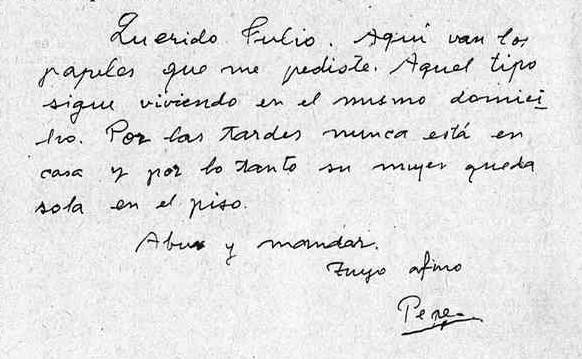 Querido Julio. Aquí van los
papeles que me pediste. Aquel tipo
sigue viviendo en el mismo domici
lio. Por las tardes nunca está en
casa y por lo tanto su mujer queda
sola en el piso.
Abur y mandar.
Tuyo afmo
Pepe